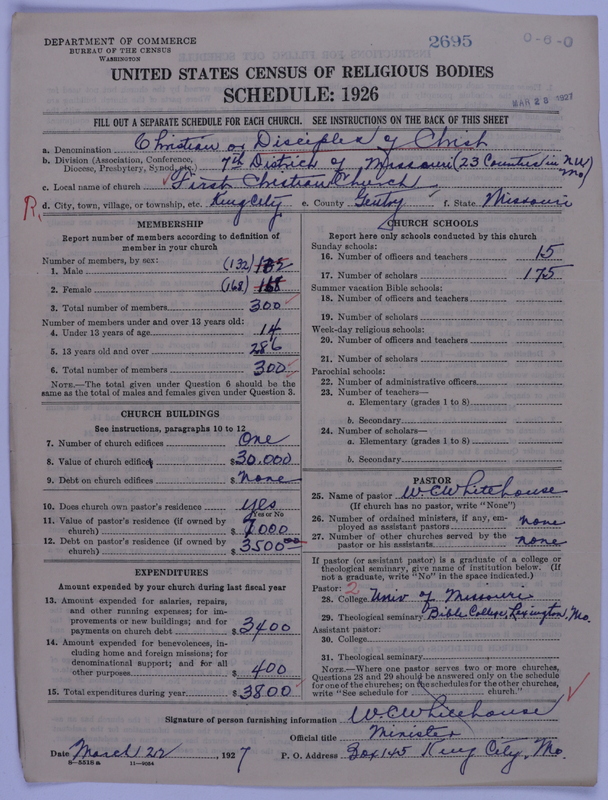 DEPARTMENT OF COMMERCE
BUREAU OF THE CENSUS
WASHINGTON
2695
0-6-0
UNITED STATES CENSUS OF RELIGIOUS BODIES
SCHEDULE: 1926
MAR 28 1927
FILL OUT A SEPARATE SCHEDULE FOR EACH CHURCH. SEE INSTRUCTIONS ON THE BACK OF THIS SHEET
a. Denomination Christian or Disciples of Christ
b. Division (Association, Conference, Diocese, Presbytery, Synod, etc.) 7th District of Missouri (23 Counties in N.W. Mo)
c. Local name of church First Christian Church
R. d. City, town, village, or township, etc. King City e. County Gentry f. State Missouri
MEMBERSHIP
Report number of members according to definition of
member in your church
Number of members, by sex:
1. Male (132)
2. Female (168)
3. Total number of members 300
Number of members under and over 13 years old:
4. Under 13 years of age 14
5. 13 years old and over 286
6. Total number of members 300
NOTE.—The total given under Question 6 should be the
same as the total of males and females given under Question 3.
CHURCH BUILDINGS
See instructions, paragraphs 10 to 12
7. Number of church edifices One
8. Value of church edifice $30,000
9. Debt on church edifices $None
10. Does church own pastor's residence yes
Yes or No
11. Value of pastor's residence (if owned by
church) $7000
12. Debt on pastor's residence (if owned by
church) $3500 00
EXPENDITURES
Amount expended by your church during last fiscal year
13. Amount expended for salaries, repairs,
and other running expenses; for im-
provements or new buildings; and for
payments on church debt $3400
14. Amount expended for benevolences, in-
cluding home and foreign missions; for
denominational support; and for all
other purposes $400
15. Total expenditures during year $3800
CHURCH SCHOOLS
Report here only schools conducted by this church
Sunday schools:
16. Number of officers and teachers 15
17. Number of scholars 175
Summer vacation Bible schools:
18. Number of officers and teachers
19. Number of scholars
Week-day religious schools:
20. Number of officers and teachers
21. Number of scholars
Parochial schools:
22. Number of administrative officers
23. Number of teachers—
a. Elementary (grades 1 to 8)
b. Secondary
24. Number of scholars—
a. Elementary (grades 1 to 8)
b. Secondary
PASTOR
25. Name of pastor W C Whitehouse
(If church has no pastor, write "None")
26. Number of ordained ministers, if any, em-
ployed as assistant pastors none
27. Number of other churches served by the
pastor or his assistants none
If pastor (or assistant pastor) is a graduate of a college or
theological seminary, give name of institution below. (If
not a graduate, write "No" in the space indicated.)
Pastor: 2
28. College Univ of Missouri
29. Theological seminary Bible College, Lexington, Mo.
Assistant pastor:
30. College
31. Theological seminary
NOTE.—Where one pastor serves two or more churches,
Questions 28 and 29 should be answered only on the schedule
for one of the churches; on the schedules for the other churches,
write "See schedule for church."
Signature of person furnishing information W C Whitehouse
Official title Minister
Date March 22, 1927 P. O. Address Box 145 King City, Mo.
8-5518 a 11-9064